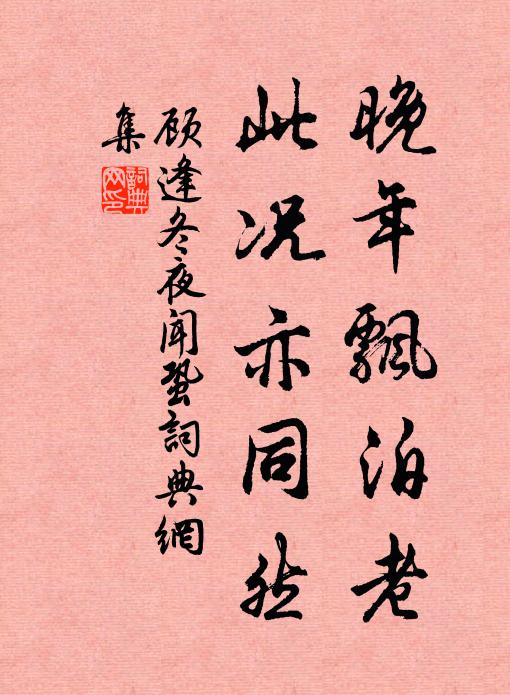 晚年飘泊老
此况亦同然
顾逢冬夜闻蛩詞典網
集
詞典
网印